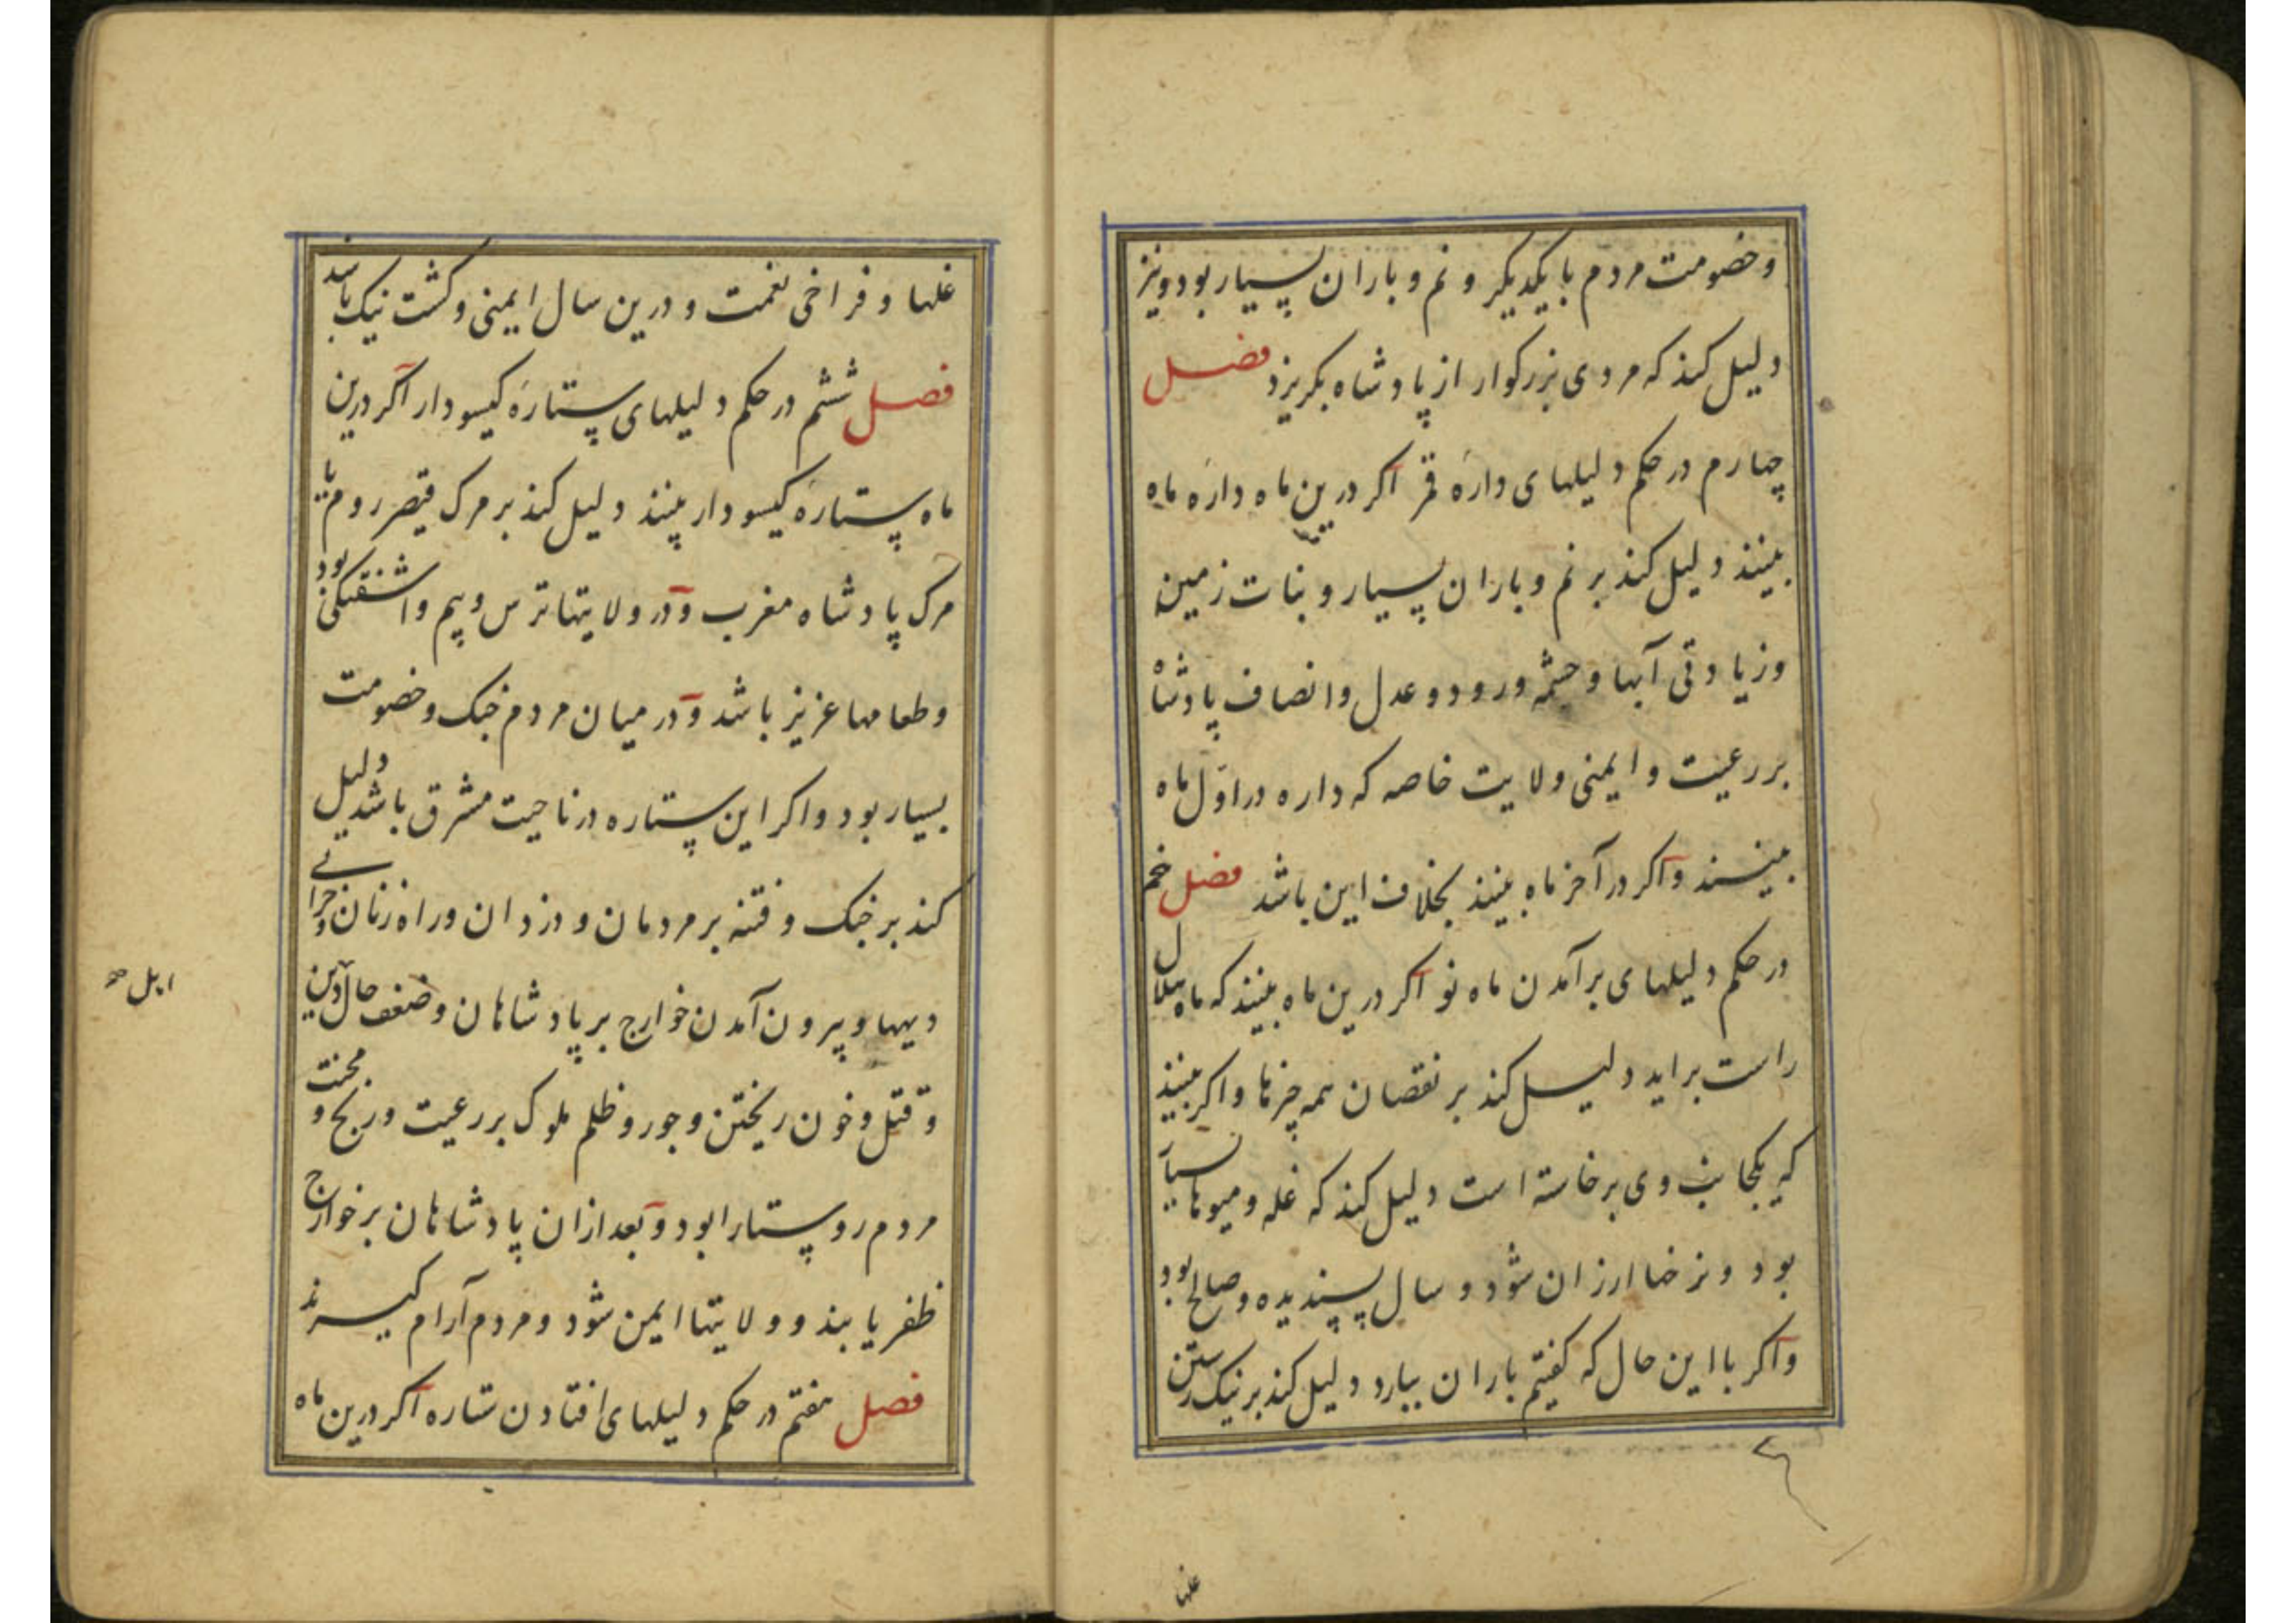 و خصومت مردم با یکدیکر و نم و باران بسیار بود و نیز
دلیل کند که مردی بزرکوار از پادشاه بکریزد فصل
چهارم در حکم دلیلهای دارهٔ قمر اکر درین ماه دارهٔ ماه
بینند دلیل کند بر نم و باران بسیار و نبات زمین
و زیادتی آبها و چشمه و رود و عدل و انصاف پادشاه
بر رعیت و ایمنی ولایت خاصه که داره در اوّل ماه
بینند و اکر در آخر ماه بینند بخلاف این باشد فصل
در حکم دلیلهای برآمدن ماه نو اکر درین ماه بینند که ماه هلال
راست براید دلیل کند بر نقصان همه چیزها و اکر بینند
که یکجانب وی برخاسته است دلیل کند که غله و میوها بسیار
بود و نرخها ارزان شود و سال پسندیده و صالح بود
و اکر با این حال که کفتیم باران ببارد دلیل کند بر نیک رستن
غلها
غلها و فراخی نعمت و درین سال ایمنی و کشت نیک باشد
فصل ششم در حکم دلیلهای ستارهٔ کیسودار اکر درین
ماه ستارهٔ کیسودار بینند دلیل کند بر مرک قیصر روم یا
مرک پادشاه مغرب و در ولایتها ترس و بیم و اشفتکی بود
و طعامها عزیز باشد و در میان مردم جنک و خصومت
بسیار بود و اکر این ستاره در ناحیت مشرق باشد دلیل
کند بر جنک و فتنه بر مردمان و دزدان و راه زنان و خرابی
دیهها و بیرون آمدن خوارج بر پادشاهان و ضعف حال دین
و قتل و خون ریختن و جور و ظلم ملوک بر رعیت و رنج و محنت
مردم روستا را بود و بعد ازان پادشاهان بر خوارج
ظفر یابند و ولایتها ایمن شود و مردم آرام کیرند
فصل هفتم در حکم دلیلهای افتادن ستاره اکر درین ماه